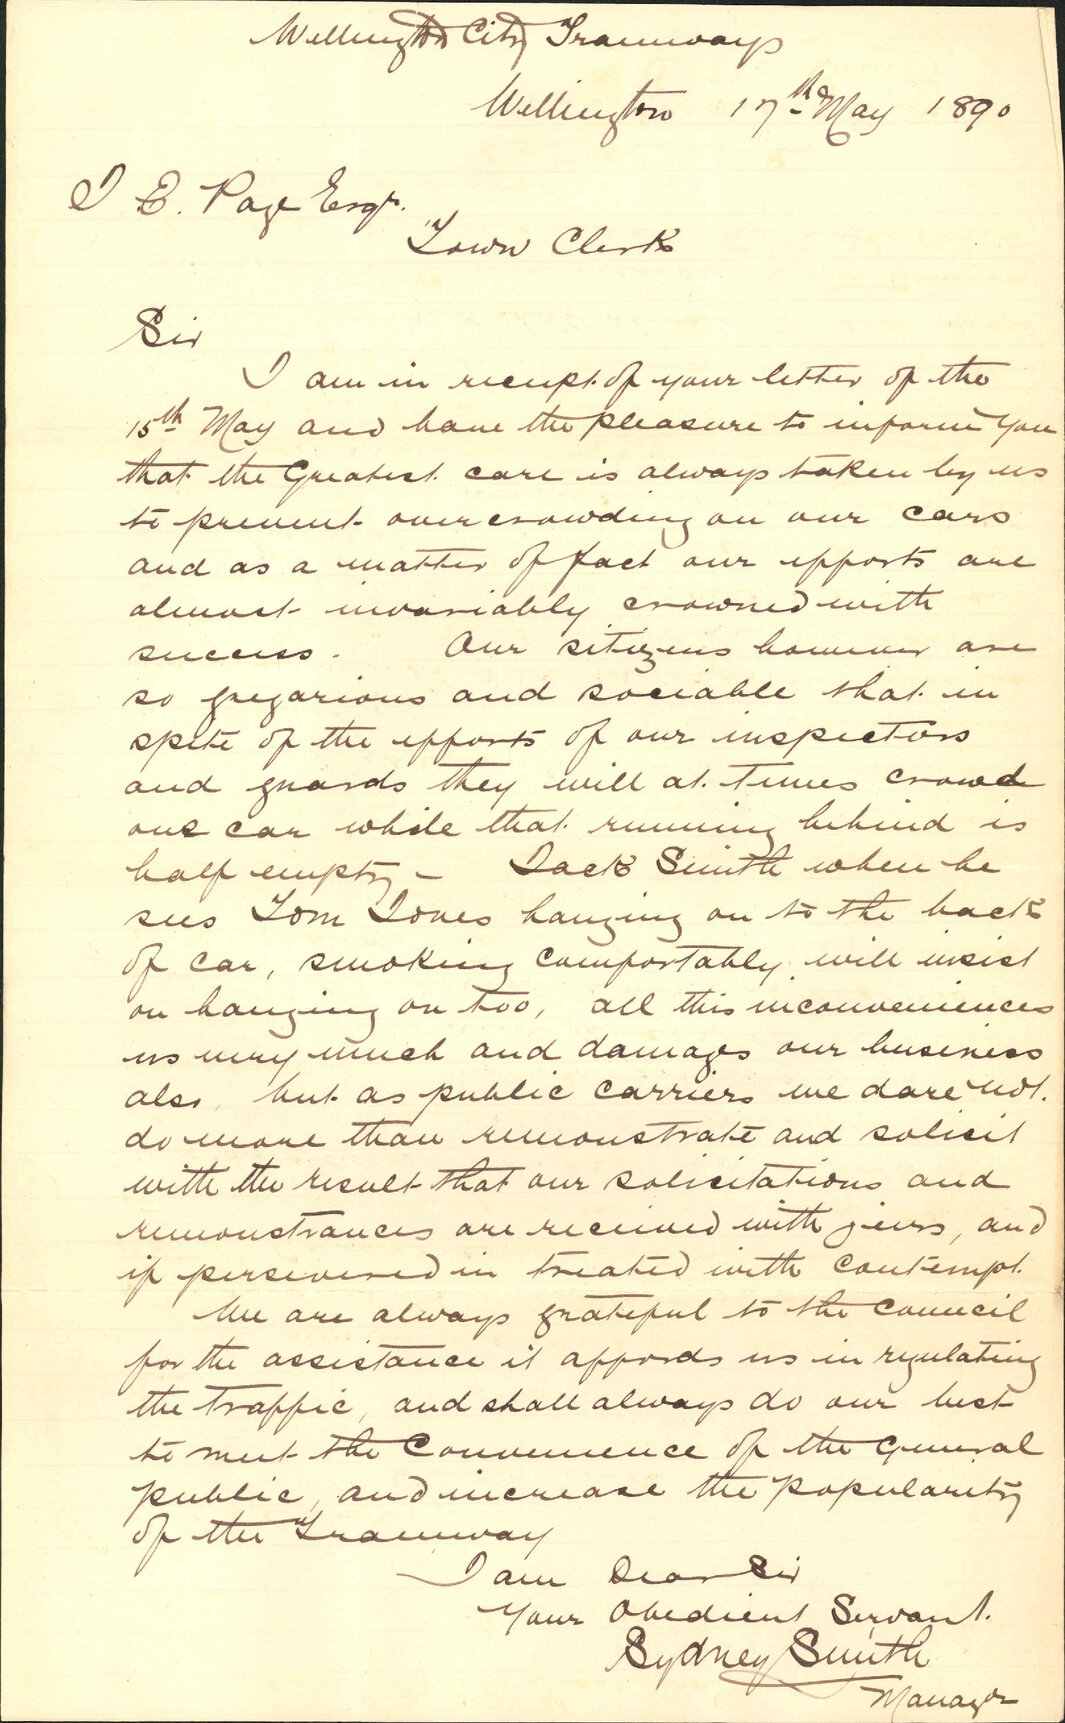 Wellington City Tramways
Wellington 17th May 1890
J E. Page Esqr.
Town Clerk
Sir
I am in receipt of your letter of the
15th May and have the pleasure to inform you
that the Greatest care is always taken by us
to prevent overcrowding on our cars
and as a matter of fact our efforts are
almost invariably crowned with
success. Our sitizens however are
so gregarious and sociable that in
spite of the efforts of our inspectors
and guards they will at times crowd
one car while that running behind is
half empty - Jack Smith when he
sees Tom Jones hanging on to the back
of car, smoking comfortably will insist
on hanging on too, all this inconveniences
us very much and damages our business
also, but as public carriers we dare not
do more than remonstrate and solicit
with the result that our solicitations and
remonstrances are received with jeers, and
if persevered in treated with contempt.
We are always grateful to the council
for the assistance it affords us in regulating
the traffic, and shall always do our best
to meet the Convenience of the General
public, and increase the popularity
of the Tramway
I am Dear Sir
Your Obedient Servant.
Sydney Smith
Manager